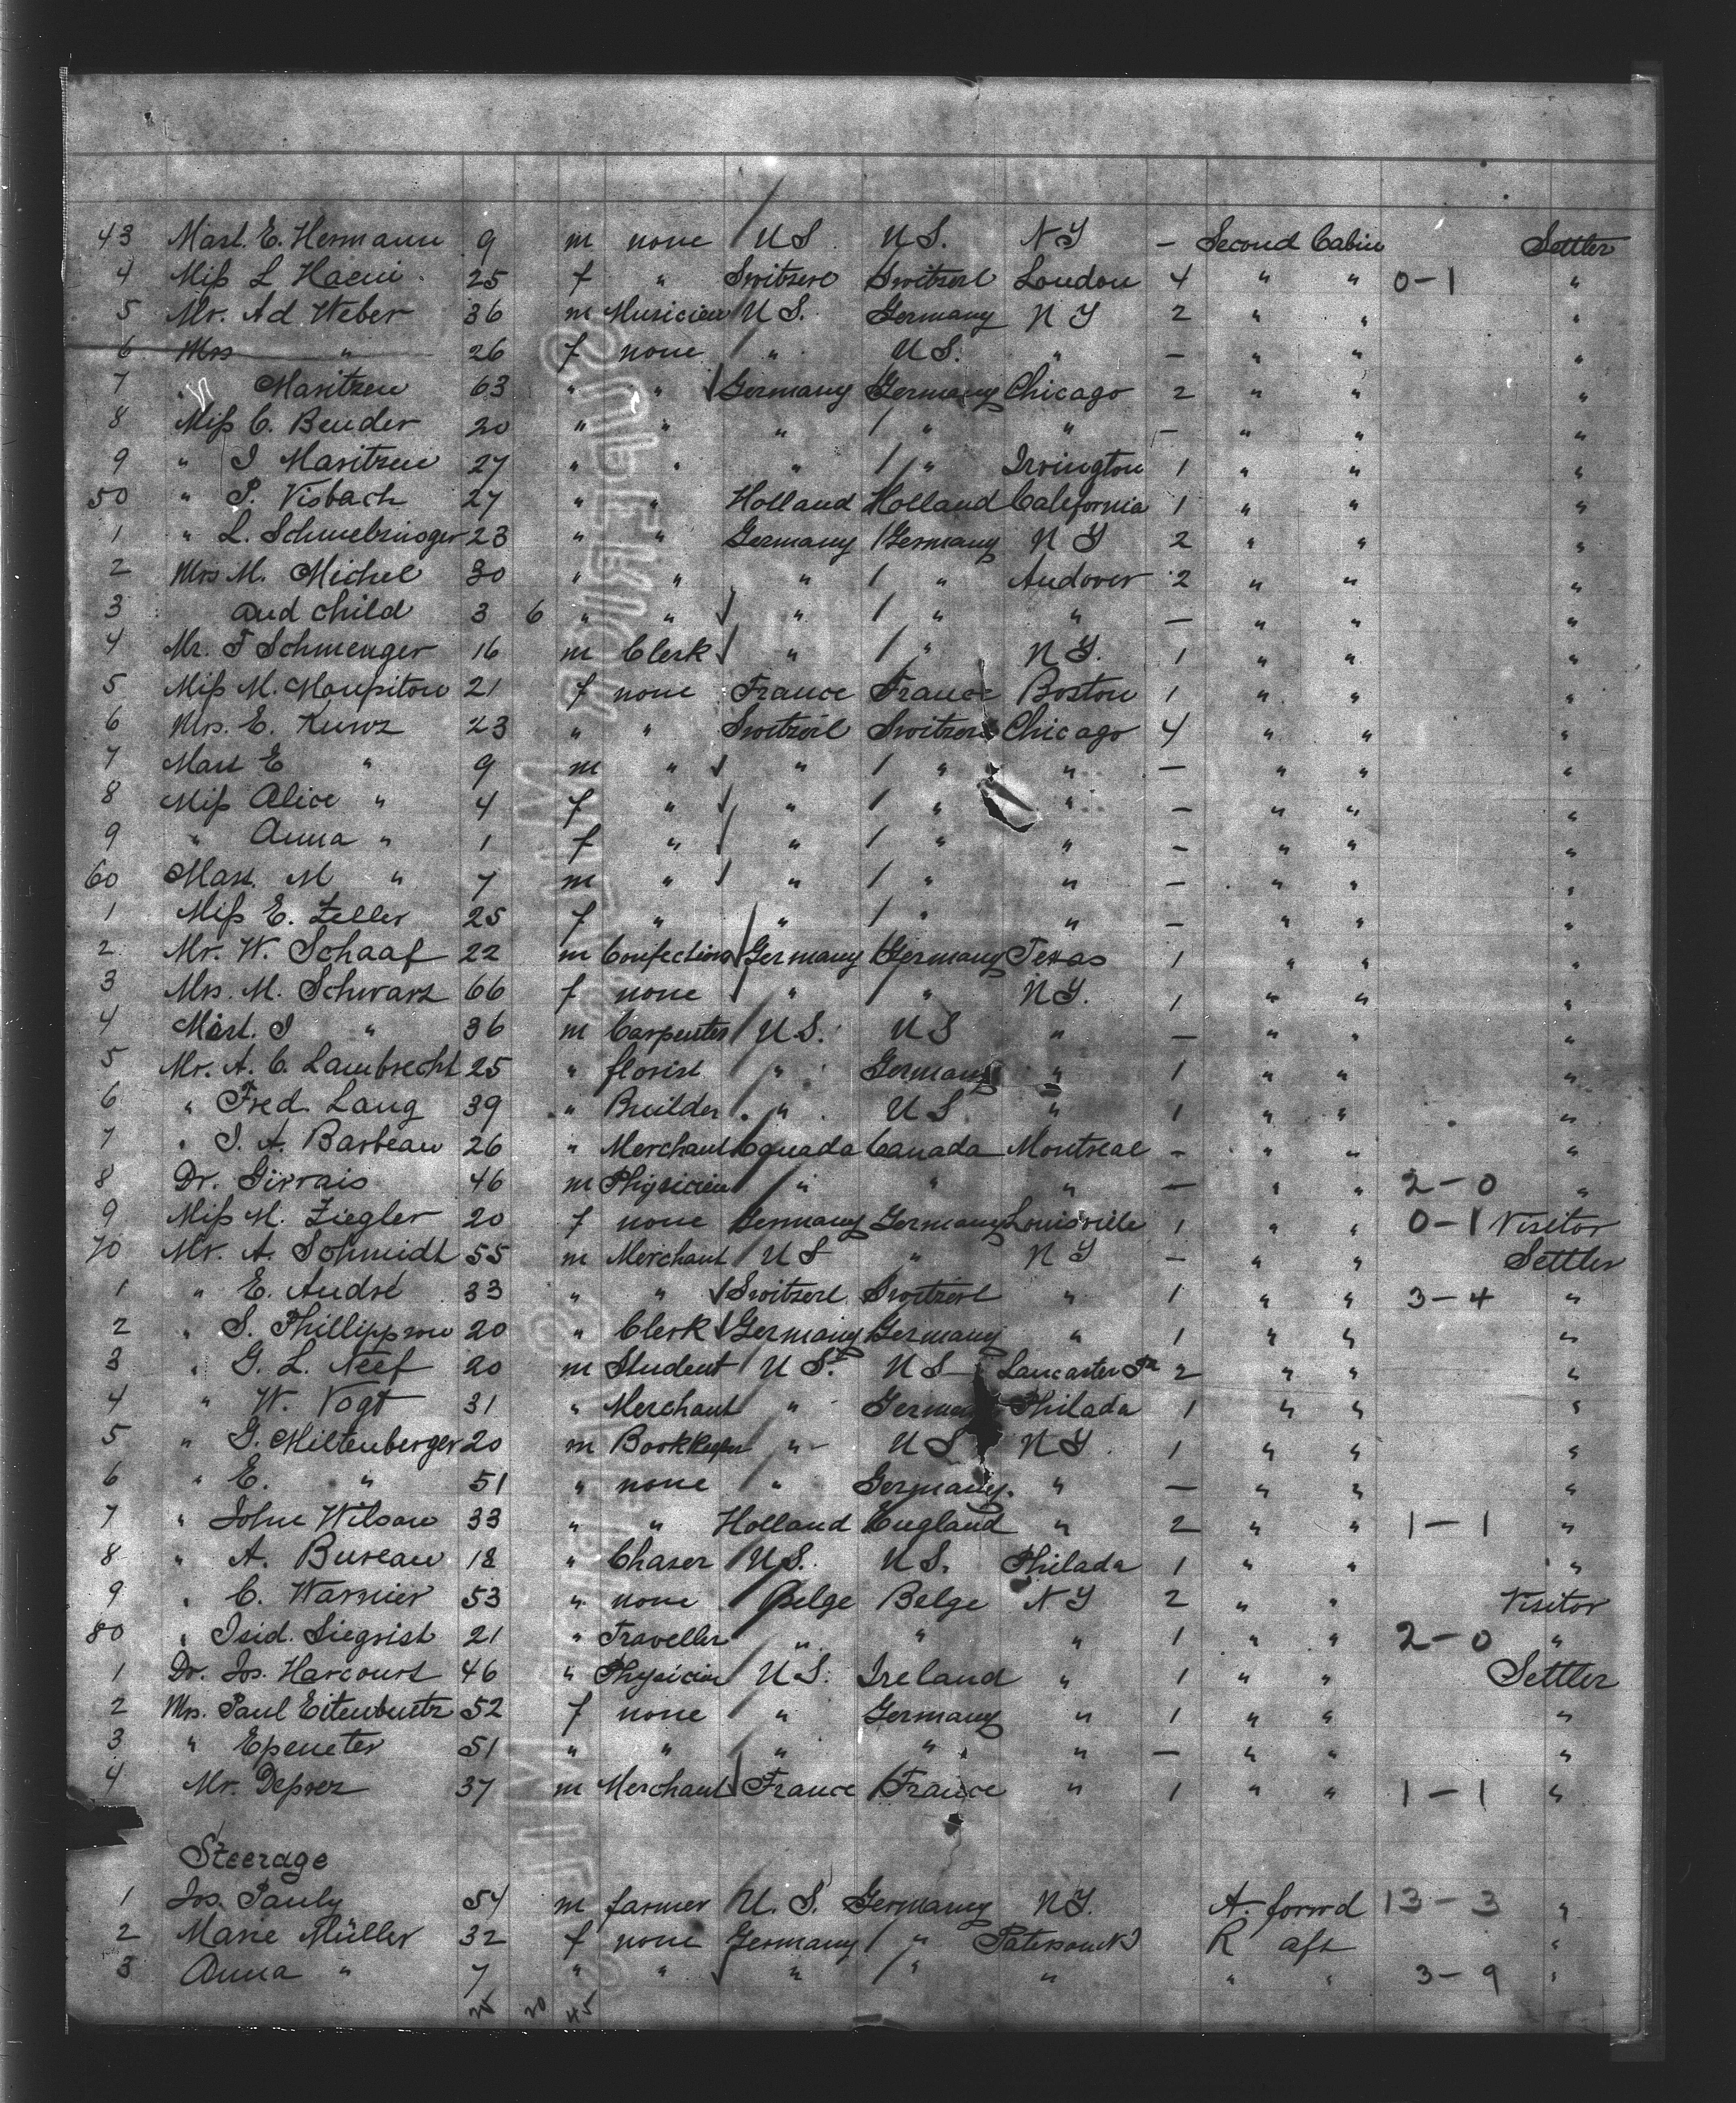 43 Mast. E. Hermann 9 m none US. US. NY — Second Cabin Settler
4 Miss L Haeni 25 f " Switzerl Switzerl London 4 " " 0-1 "
5 Mr. Ad Weber 36 m Musician U S. Germany N Y 2 " " "
6 Mrs " 26 f none " U S. " — " " "
7 " Maritzen 63 " " Germany Germany Chicago 2 " " "
8 Miss C. Bender 20 " " " " " — " " "
9 " I Maritzen 27 " " " " Irvington 1 " " "
50 " P. Visbach 27 " " Holland Holland California 1 " " "
1 " L. 23 " " Germany Germany N Y 2 " " "
2 Mrs M. Michel 30 " " " " Andover 2 " " "
3 and child 3 6 " " " " " — " " "
4 Mr. F Schmenger 16 m Clerk " " N Y. 1 " " "
5 Miss M. Maupiton 21 f none France France Boston 1 " " "
6 Mrs. E. Kunz 23 " " Switzerl Switzerl Chicago 4 " " "
7 Mast E " 9 m " " " " — " " "
8 Miss Alice " 4 f " " " " — " " "
9 " Anna " 1 f " " " " — " " "
60 Mast. M " 7 m " " " " — " " "
1 Miss E. Zeller 25 f " " " " — " " "
2 Mr. W. Schaaf 22 m Confection Germany Germany Texas 1 " " "
3 Mrs. M. Schwarz 66 f none " " N Y. 1 " " "
4 Mast. I " 36 m Carpenter U S. U S " — " " "
5 Mr. A. C. Lambrecht 25 " florist " Germany " 1 " " "
6 " Fred. Lang 39 " Builder " U S " 1 " " "
7 " I. A. Barbeau 26 " Merchant Canada Canada Montreal — " " "
8 Dr. Girrais 46 m Physician " " " — " " 2-0 "
9 Miss M. Ziegler 20 f none Germany Germany Louisville 1 " " 0-1 Visitor
70 Mr. A. Schmidt 55 m Merchant U S " N Y — " " Settler
1 " E. André 33 " " Switzerl. Switzerl " 1 " " 3-4 "
2 " S. Phillippson 20 " Clerk Germany Germany " 1 " " "
3 " G. L. Neef 20 m Student U S. U S Lancaster Pa 2 " " "
4 " W. Vogt 31 " Merchant " German Philada 1 " " "
5 " G. Miltenberger 20 m Bookkeper " U S N Y. 1 " " "
6 " E. " 51 " none " Germany. " — " " "
7 " John Wilson 33 " " Holland England " 2 " " 1-1 "
8 " A. Bureau 18 " Chaser U S. U S. Philada 1 " " "
9 " C. Warnier 53 " none Belge Belge N Y 2 " " Visitor
80 " Isid. Siegrist 21 " Traveller " " " 1 " " 2-0 "
1 Dr. Jos. Harcourt 46 " Physician U S. Ireland " 1 " " Settler
2 Mrs. Paul 52 f none " Germany " 1 " " "
3 " Epeneter 51 " " " " " — " " "
4 Mr. Deprez 37 m Merchant France France " 1 " " 1-1 "
Steerage
1 Jos. Pauly 54 m farmer U. S. Germany N Y. A. forwd 13-3 "
2 Marie Müller 32 f none Germany " Paterson NJ R aft "
3 Anna " 7 " " " " " " " 3-9 "
25 20 45